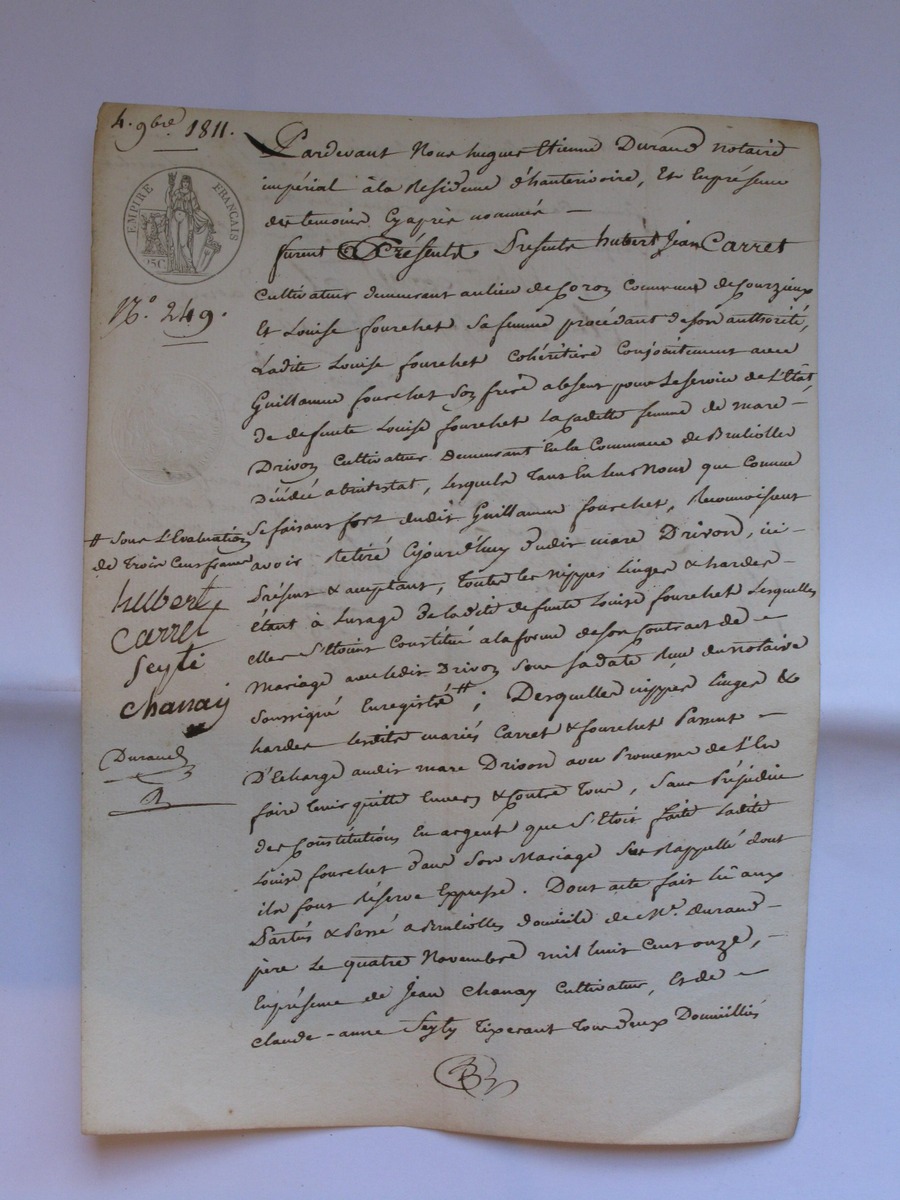 4. 9bre 1811.
EMPIRE FRANÇAIS
25C
N.º 249.
Pardevant Nous hugues Etienne Durand notaire
impérial à la Residence d'hauterivoire, Et Enprésence
des temoins Cyaprès nommés —
furent Présents hubert Jean Carret
Cultivateur demeurant aulieu de Commune de Courzieux
Et Louise fourchet Sa femme procédant deson authorité,
Ladite Louise fourchet Cohéritière Conjointement avec
Guillaume fourchet Son frère absent pour Leservice de L'Etat
de defunte Louise fourchet La Cadette femme de marc —
Drivon Cultivateur demeurant En la Commune de Brulliolles
Décédée abintestat, Lesquels Tant En leur Nom que Comme
Sefaisant fort dudit Guillaume fourchet, Reconnoissent
avoir Retiré Cejourd'huy dudit marc Drivon, ici —
Présent & acceptant, Toutes les Nippes Linges & hardes —
étant à Lusage de ladite defunte Louise fourchet Lesquelles
elle S'étoient Constitué a la forme de son Contract de —
Mariage avec ledit Drivon Sous Sa date Reçu du notaire
Soussigné Enregistré #; Desquelles nippes Linges &
hardes lesdits mariés Carret & fourchet Passent —
D'Echarge audit marc Drivon avec Promesse de L'En
faire Tenir quitte Envers & Contre Tous, Sans Préjudice
des Constitutions En argent que S'Etoit faite Ladite
Louise fourchet dans Son Mariage Sus Rappellé dont
ils font Réserve Expresse. Dont acte fait lû aux
Parties & Passé a Brulliolles domicile de Mr. durand —
père Le quatre Novembre mil huit Cent onze, —
Enprésence de Jean Chanay Cultivateur, Et de —
Claude-anne Seyty Tixerant Tous deux Domiciliés
# Sous L'Evaluation
de Trois Cens francs
hubert
Carret
Seyti
Chanay
Durand